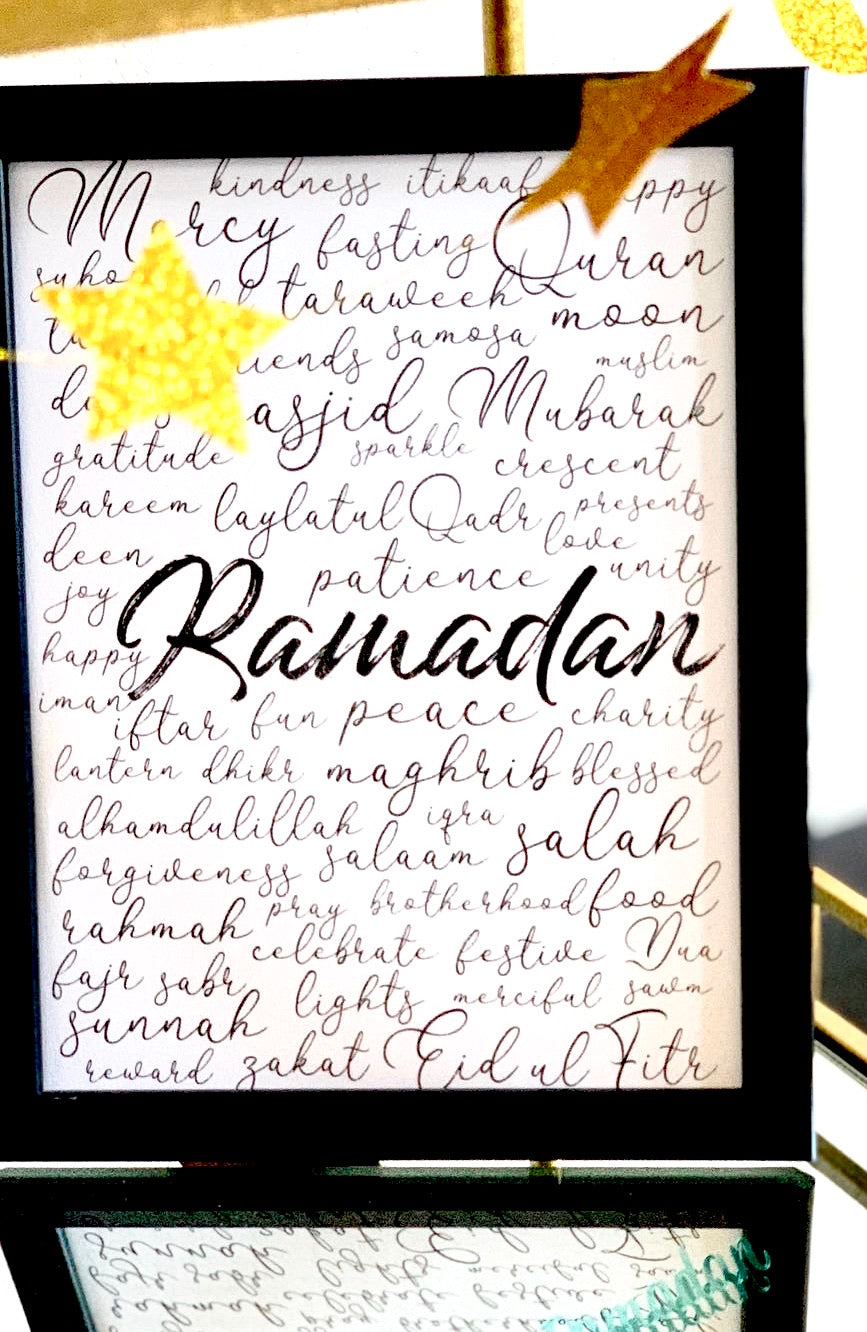 kindness itikaaf
Mercy fasting Quran
taraweeh moon
samosa muslim
Mubarak
gratitude sparkle crescent
kareem laylatul Qadr presents
deen love
joy patience unity
Ramadan
happy
iman
iftar fun peace charity
lantern dhikr maghrib blessed
alhamdulillah iqra salah
forgiveness salaam
rahmah pray brotherhood food
celebrate festive Dua
fajr sabr lights merciful sawm
sunnah
reward zakat Eid ul Fitr